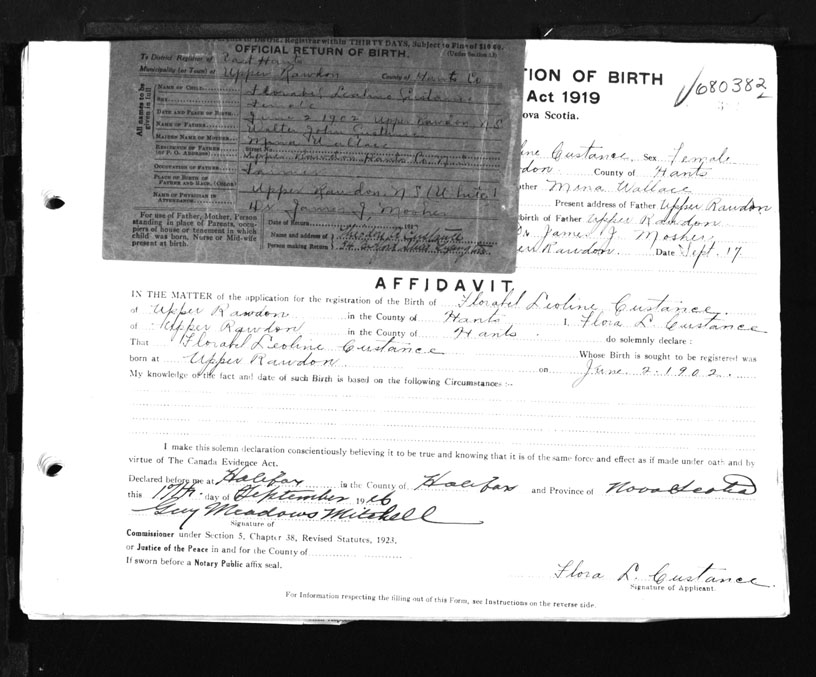 Registrar within THIRTY DAYS, Subject to Fine of $10.00.
OFFICIAL RETURN OF BIRTH.
To District Registrar of East Hants
Municipality (or Town) of Upper Rawdon County of Hants Co
All names to be given in full
NAME OF CHILD Florabel Leoline Custance
SEX Female
DATE AND PLACE OF BIRTH June 2 1902 Upper Rawdon N.S
NAME OF FATHER Walter John Custance
MAIDEN NAME OF MOTHER Mina Wallace
RESIDENCE OF FATHER (or P. O. ADDRESS) Street No. Upper Rawdon Hants Co N.S
OCCUPATION OF FATHER Farmer
PLACE OF BIRTH OF FATHER AND RACE (COLOR) Upper Rawdon N.S (White)
NAME OF PHYSICIAN IN ATTENDANCE James J. Mosher
For use of Father, Mother, Person standing in place of Parents, occupiers of house or tenement in which child was born, Nurse or Mid-wife present at birth.
Date of Return 191
Name and address of
Person making Return
TION OF BIRTH
Act 1919
ova Scotia.
680382
line Custance Sex Female
don County of Hants
other Mina Wallace
Present address of Father Upper Rawdon
birth of Father Upper Rawdon
James J. Mosher
er Rawdon. Date Sept. 17
AFFIDAVIT
IN THE MATTER of the application for the registration of the Birth of Florabel Leoline Custance
of Upper Rawdon in the County of Hants I, Flora L. Custance
of Upper Rawdon in the County of Hants do solemnly declare:
That Florabel Leoline Custance Whose Birth is sought to be registered was
born at Upper Rawdon on June 2. 1902.
My knowledge of the fact and date of such Birth is based on the following Circumstances :-
I make this solemn declaration conscientiously believing it to be true and knowing that it is of the same force and effect as if made under oath and by
virtue of The Canada Evidence Act.
Declared before me at Halifax in the County of Halifax and Province of Nova Scotia
this 17th day of September 19
Guy Meadows Mitchell
Signature of
Commissioner under Section 5, Chapter 38, Revised Statutes, 1923,
or Justice of the Peace in and for the County of
If sworn before a Notary Public affix seal.
Flora L. Custance.
Signature of Applicant.
For Information respecting the filling out of this Form, see Instructions on the reverse side.